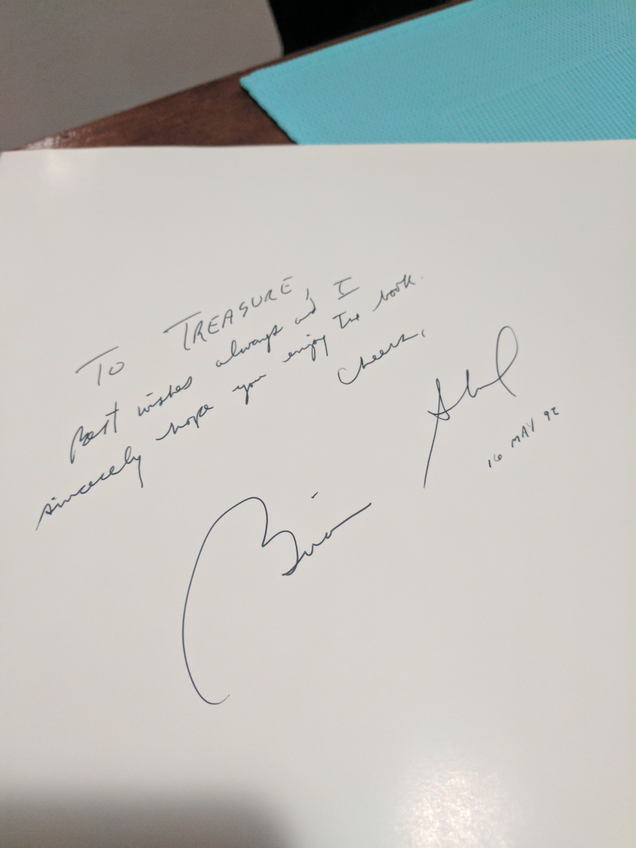 To TREASURE,
Best wishes always and I
sincerely hope you enjoy the book.
Cheers,
Brian
16 MAY 92